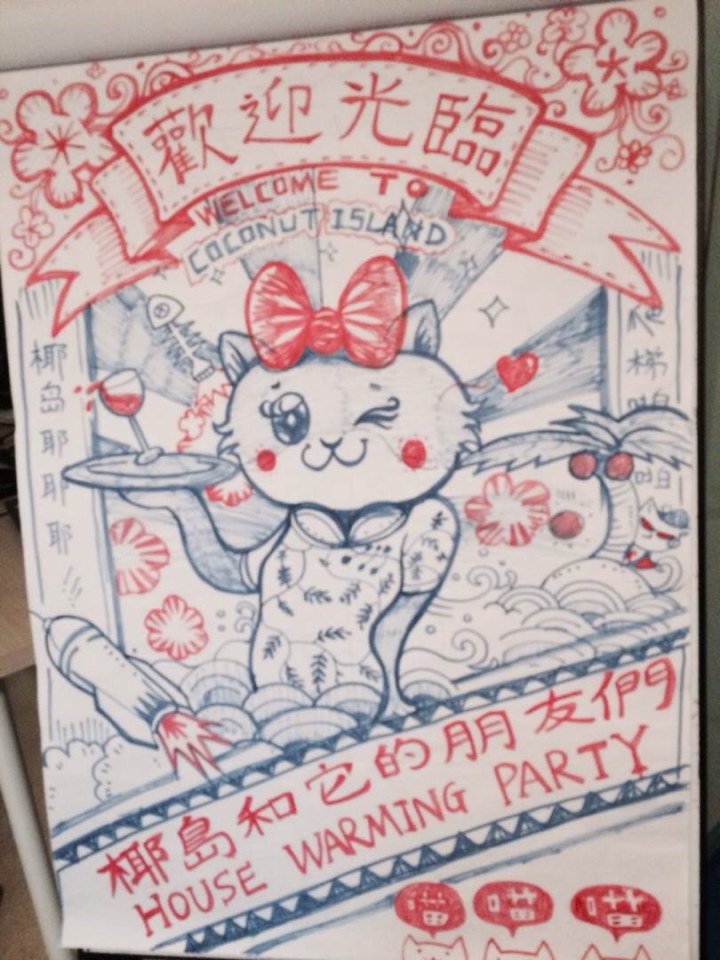 歡迎光臨
WELCOME TO
COCONUT ISLAND
椰岛耶耶耶
梯啪
椰島和它的朋友們
HOUSE WARMING PARTY